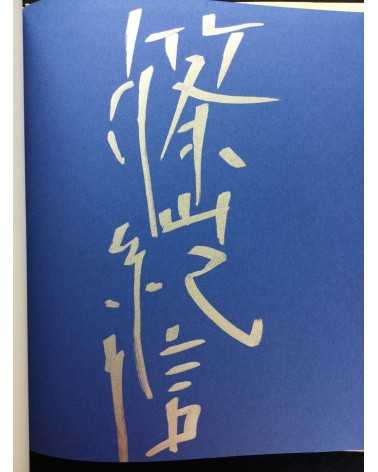 篠山紀信